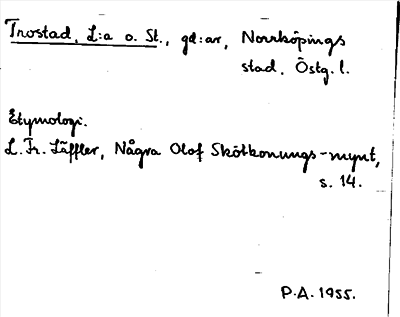 Trostad, L:a o. St., gd:ar, Norrköpings
stad, Östg. l.
Etymologi.
L. Fr. Läffler, Några Olof Skötkonungs-mynt,
s. 14.
P.A. 1955.